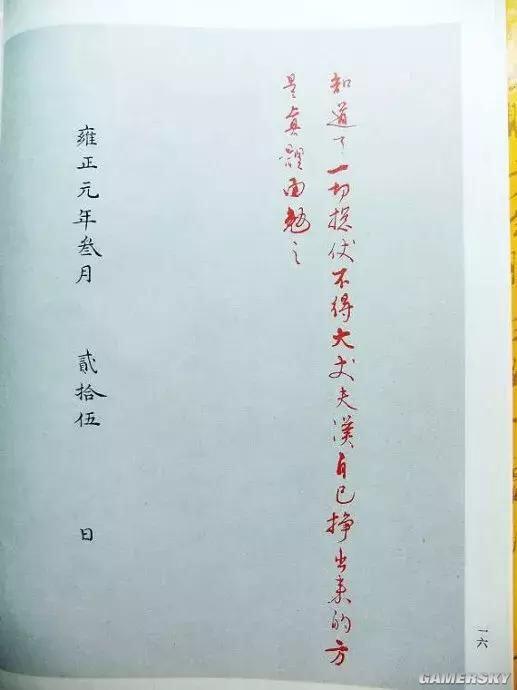 知道了一切捴仗不得大丈夫漢自己挣出来的方
是真體面勉之
雍正元年叁月 貳拾伍 日
一六
GAMERSKY